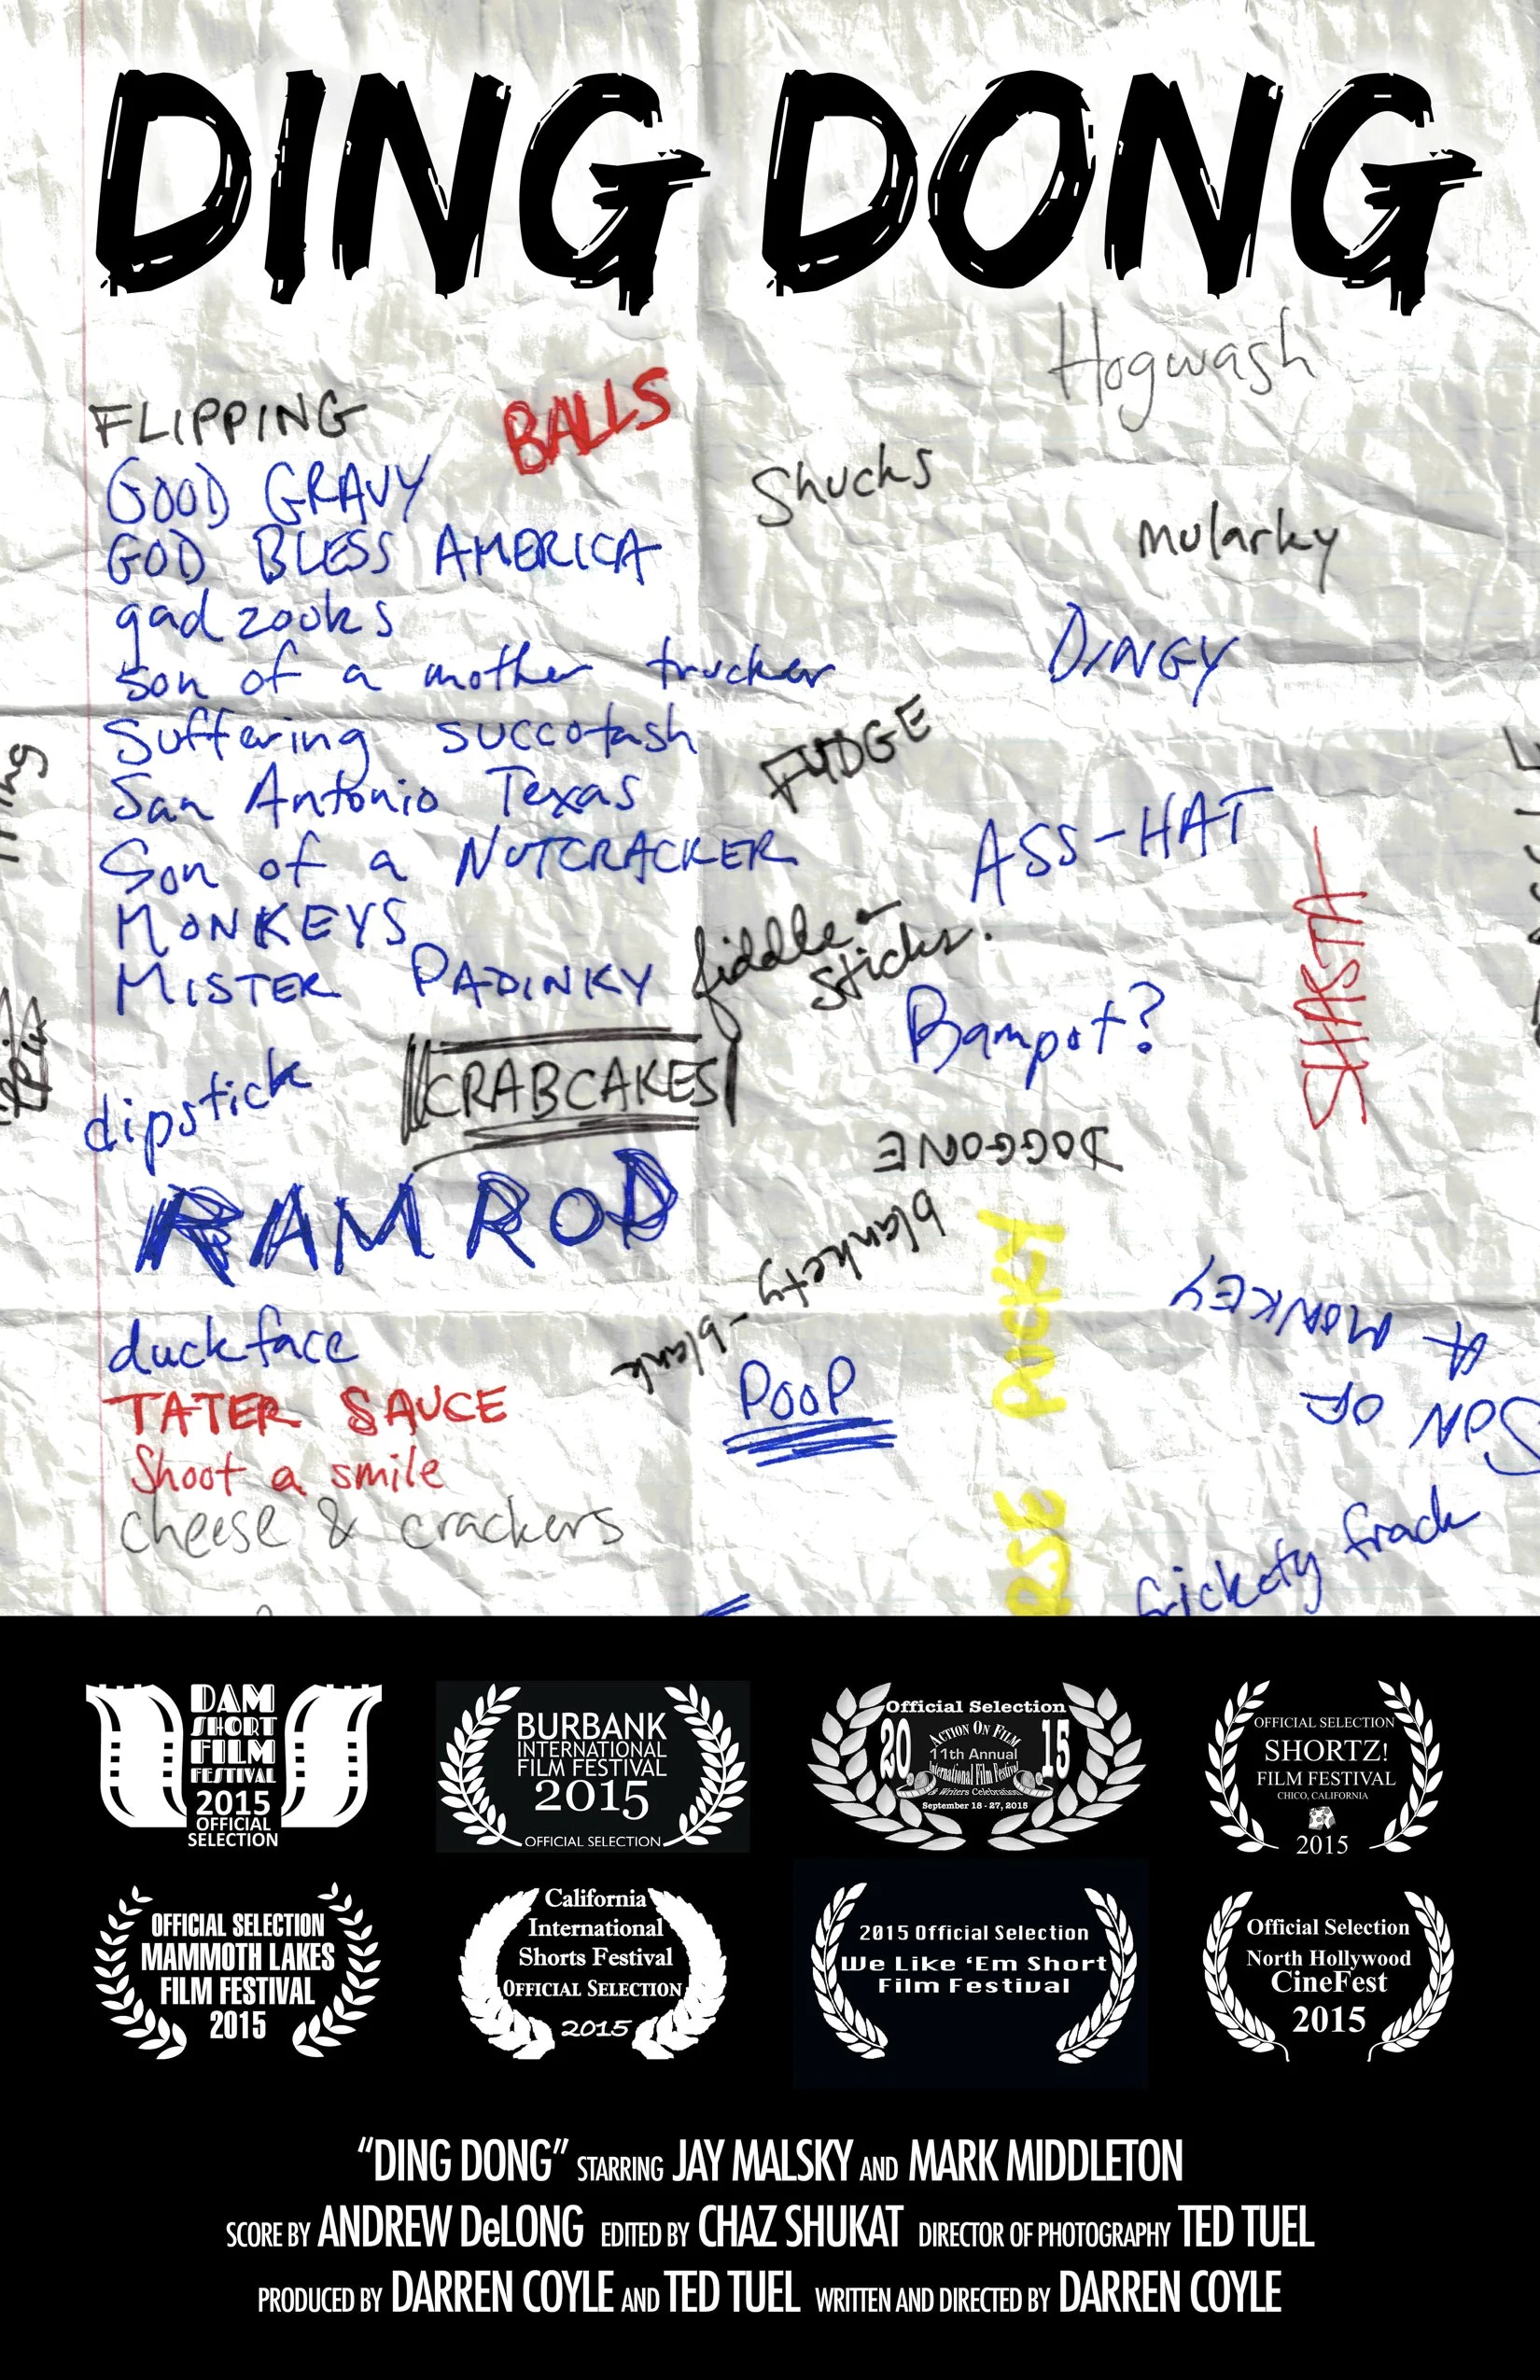 DING DONG
Hogwash
FLIPPING
BALLS
GOOD GRAVY
Shucks
GOD BLESS AMERICA
mularky
gadzooks
son of a mother trucker
DINGY
Suffering succotash
FUDGE
San Antonio Texas
ASS-HAT
Son of a NUTCRACKER
SHASTA
MONKEYS
fiddle-
sticks.
MISTER PADINKY
Bampot?
dipstick
CRABCAKES
DOGGONE
RAMROD
blankety-blank
PUCKY
SON OF
A MONKEY
duckface
POOP
TATER SAUCE
Shoot a smile
cheese & crackers
frickety frack
DAM
SHORT
FILM
FESTIVAL
2015
OFFICIAL
SELECTION
BURBANK
INTERNATIONAL
FILM FESTIVAL
2015
OFFICIAL SELECTION
Official Selection
2015
ACTION ON FILM
11th Annual
International Film Festival
& Writers Celebration
September 18 - 27, 2015
OFFICIAL SELECTION
SHORTZ!
FILM FESTIVAL
CHICO, CALIFORNIA
2015
OFFICIAL SELECTION
MAMMOTH LAKES
FILM FESTIVAL
2015
California
International
Shorts Festival
OFFICIAL SELECTION
2015
2015 Official Selection
We Like ‘Em Short
Film Festival
Official Selection
North Hollywood
CineFest
2015
“DING DONG” STARRING JAY MALSKY AND MARK MIDDLETON
SCORE BY ANDREW DeLONG EDITED BY CHAZ SHUKAT DIRECTOR OF PHOTOGRAPHY TED TUEL
PRODUCED BY DARREN COYLE AND TED TUEL WRITTEN AND DIRECTED BY DARREN COYLE